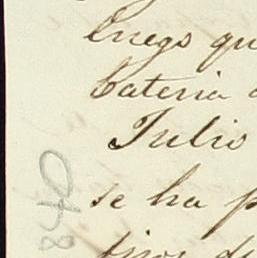 luego qu
bateria
Julio
se ha p
tiros d